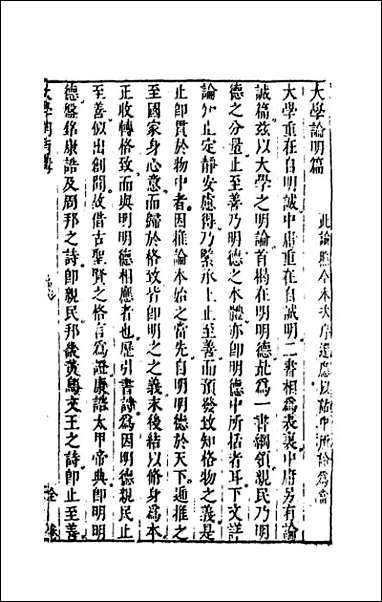 大學論明篇
此論照今本次序還應以祐中所論為當
大學重在自明誠中庸重在自誠明二書相為表裏中庸另有論
誠篇茲以大學之明論首揭在明明德是為一書綱領親民乃明
德之分量止至善乃明德之本體亦即明德中所括者耳下文詳
論知止定靜安慮得乃緊承上止至善而預發致知格物之義是
止即貫於物中者因推論本始之當先自明明德於天下遞推之
至國家身心意而歸於格致皆即明之之義末後結以修身為本
正收轉格致而與明明德相應者也歷引書詩為因明德親民止
至善似出創聞故借古聖賢之格言為證康誥太甲帝典即明明
德盤銘康誥及周邦之詩即親民邦畿黃鳥文王之詩即止至善
全卷